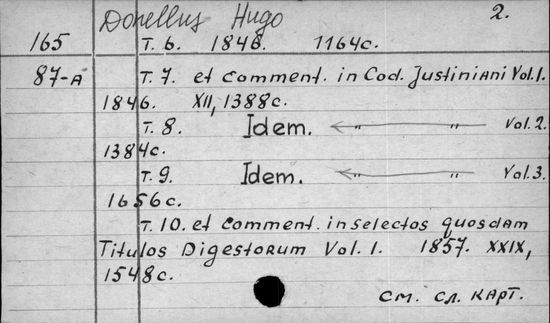 Donellus Hugo 2.
165 Т. 6. 1846. 1164с.
87-А Т. 7. et comment. in Cod. Justiniani Vol. 1.
1846. XII, 1388с.
Т. 8. Idem. " " Vol. 2.
1384с.
Т. 9. Idem. " " Vol. 3.
1656с.
Т. 10. et comment. in selectos quosdam
Titulos Digestorum Vol. 1. 1857. XXIX,
1548с.
см. сл. карт.